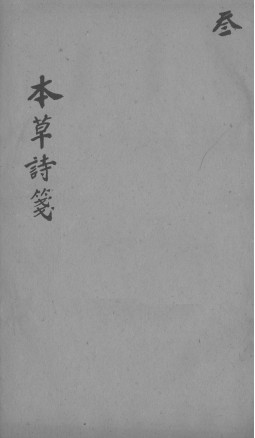 叄
本草詩箋